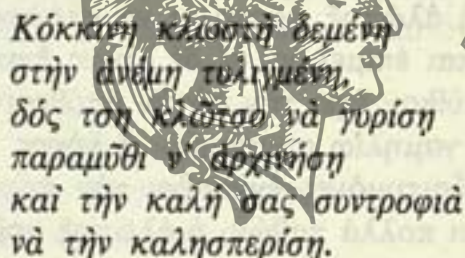 Κόκκινη κλωστὴ δεμένη
στὴν ἀνέμη τυλιγμένη,
δός τση κλῶτσο νὰ γυρίση
παραμῦθι ν' ἀρχινήση
καὶ τὴν καλή σας συντροφιὰ
νὰ τὴν καλησπερίση.